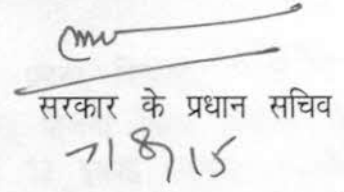 सरकार के प्रधान सचिव
7/8/15